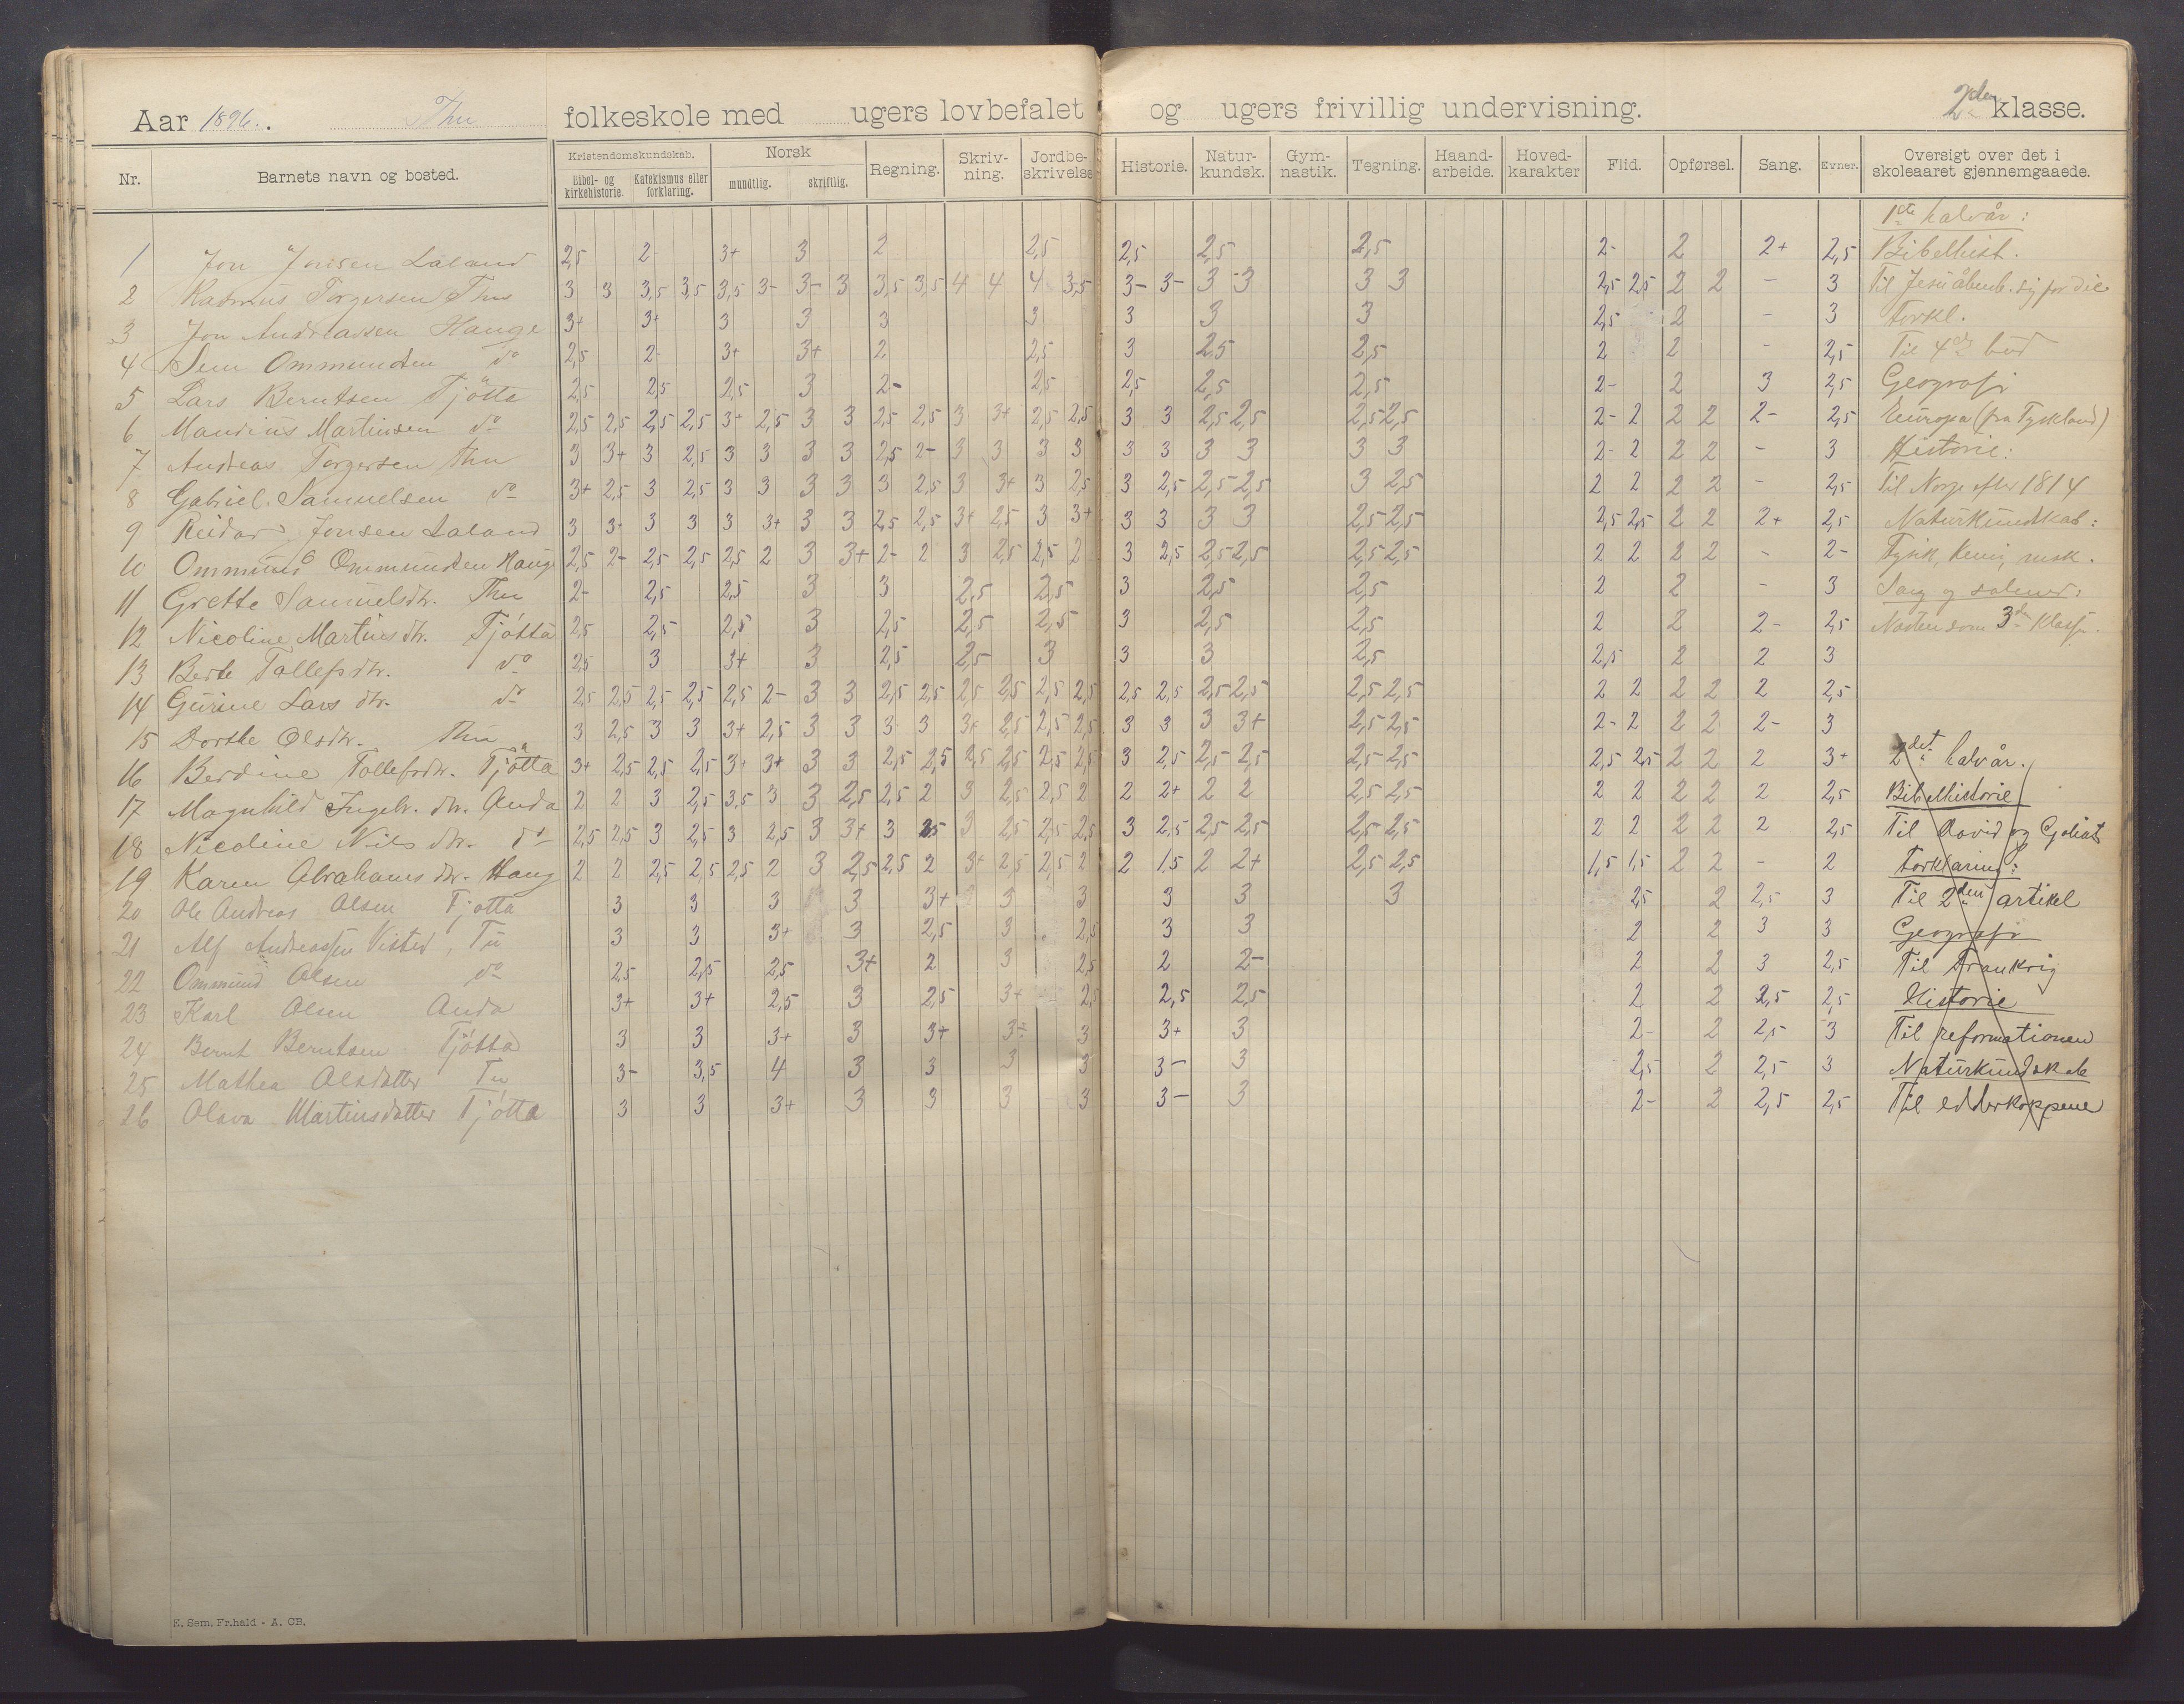 Aar 1896. Thu folkeskole med ugers lovbefalet og ugers frivillig undervisning. 2den klasse.
Nr. Barnets navn og bosted. Kristendomskundskab. Bibel- og kirkehistorie. Katekismus eller forklaring. Norsk mundtlig. skriftlig. Regning. Skriv-ning. Jordbe-skrivelse Historie. Natur-kundsk. Gym-nastik. Tegning. Haand-arbeide. Hoved-karakter Flid. Opførsel. Sang. Evner. Oversigt over det i skoleaaret gjennemgaaede.
1ste halvår:
1 Jon Jonsen Laland 2,5 2- 3+ 3 2 2,5 2,5 2,5 2,5 2- 2 2+ 2,5 Bibelhist.
2 Rasmus Torgersen Thu 3 3 3,5 3,5 3,5 3- 3- 3 3,5 3,5 4 4 4 3,5 3- 3- 3 3 3 3 2,5 2,5 2 2 - 3 Til Jesu åbenb. sig for
3 Jon Andreassen Hauge 3+ 3+ 3 3 3 3 3 3 3 2,5 2 - 3 Forkl.
4 Sem Ommundsen do 2,5 2- 3+ 3+ 2 2,5 3 2,5 2,5 2 2 - 2,5 Til 4de bud
5 Lars Berntsen Tjøtta 2,5 2,5 2,5 3 2- 2,5 2,5 2,5 2,5 2- 2 3 2,5 Geografi
6 Mandius Martinsen do 2,5 2,5 2,5 2,5 3+ 2,5 3 3 2,5 2,5 3 3+ 2,5 2,5 3 3 2,5 2,5 2,5 2,5 2- 2 2 2 2- 2,5 Europa (fra Tyskland)
7 Andreas Torgersen Thu 3 3+ 3 2,5 3 3 3 3 2,5 2- 3 3 3 3 3 3 3 3 3 3 2- 2 2 2 - 3 Historie:
8 Gabriel Samuelsen do 3+ 2,5 3 2,5 3 3 3 3 3 2,5 3 3+ 3 2,5 3 2,5 2,5 2,5 3 2,5 2 2 2 2 - 2,5 Til Norge efter 1814
9 Reidar Jonsen Laland 3 3+ 3 3 3 3+ 3 3 2,5 2,5 3+ 2,5 3 3+ 3 3 3 3 2,5 2,5 2,5 2,5 2 2 2+ 2,5 Naturkundskab:
10 Ommund Ommundsen Haug 2,5 2- 2,5 2,5 2,5 2 3 3+ 2- 2 3 2,5 2,5 2 3 2,5 2,5 2,5 2,5 2,5 2 2 2 2 - 2- Fysik, Kemi,
11 Grette Samuelsdtr. Thu 2- 2,5 2,5 3 3 2,5 2,5 3 2,5 2,5 2 2 - 3 Sang og salmer:
12 Nicoline Martinsdtr. Tjøtta 2,5 2,5 2,5 3 2,5 2,5 2,5 3 2,5 2,5 2 2 2- 2,5 Noten som 3die Klasse.
13 Berte Tollefsdtr. do 2,5 3 3+ 3 2,5 2,5 3 3 3 2,5 2,5 2 2 3
14 Gurine Lars dtr. do 2,5 2,5 2,5 2,5 2,5 2- 3 3 2,5 2,5 2,5 2,5 2,5 2,5 2,5 2,5 2,5 2,5 2,5 2,5 2 2 2 2 2 2,5
15 Dorthe Olsdtr. Thu 3 2,5 3 3 3+ 2,5 3 3 3 3 3+ 2,5 2,5 2,5 3 3 3 3+ 2,5 2,5 2- 2 2 2 2- 3
16 Berdine Tollefsdtr. Tjøtta 3+ 2,5 2,5 2,5 3+ 3+ 3 3 2,5 2,5 2,5 2,5 2,5 2,5 3 2,5 2,5 2,5 2,5 2,5 2,5 2,5 2 2 2 3+ 2det halvår.
17 Magnhild Ingebr. dtr. Anda 2 2 3 2,5 3,5 3 3 2,5 2,5 2 3 2,5 2,5 2 2 2+ 2 2 2,5 2,5 2 2 2 2 2 2,5 Bibelhistorie
18 Nicoline Nils dtr. do 2,5 2,5 3 2,5 3 2,5 3 3+ 3 2,5 3 2,5 2,5 2,5 3 2,5 2,5 2,5 2,5 2,5 2 2 2 2 2 2,5 Til David og Goliat
19 Karen Abrahams dtr. Haug 2 2 2,5 2,5 2,5 2 3 2,5 2,5 2 3+ 2,5 2,5 2 2 1,5 2 2+ 2,5 2,5 1,5 1,5 2 2 - 2 Forklaring:
20 Ole Andreas Olsen Tjøtta 3 3 3 3 3+ 3 3 3 3 3 2,5 2 2,5 3 Til 2den artikel
21 Alf Andreassen Visted, Tu 3 3 3+ 3 2,5 3 2,5 3 3 2 2 3 3 Geografi
22 Ommund Olsen do 2,5 2,5 2,5 3+ 2 3 2,5 2 2- 2 2 3 2,5 Til Frankrig
23 Karl Olsen Anda 3+ 3+ 2,5 3 2,5 3+ 2,5 2,5 2,5 2 2 2,5 2,5 Historie
24 Bernt Berntsen Tjøtta 3 3 3+ 3 3+ 3+ 3 3+ 3 2- 2 2,5 3 Til reformationen
25 Mathea Olsdatter Tu 3- 3,5 4 3 3 3 3 3- 3 2,5 2 2,5 3 Naturkundskab
26 Olava Martinsdatter Tjøtta 3 3 3+ 3 3 3 3 3- 3 2- 2 2,5 2,5 Til edderkoppene
E. Sem. Fr.hald - A. CB.